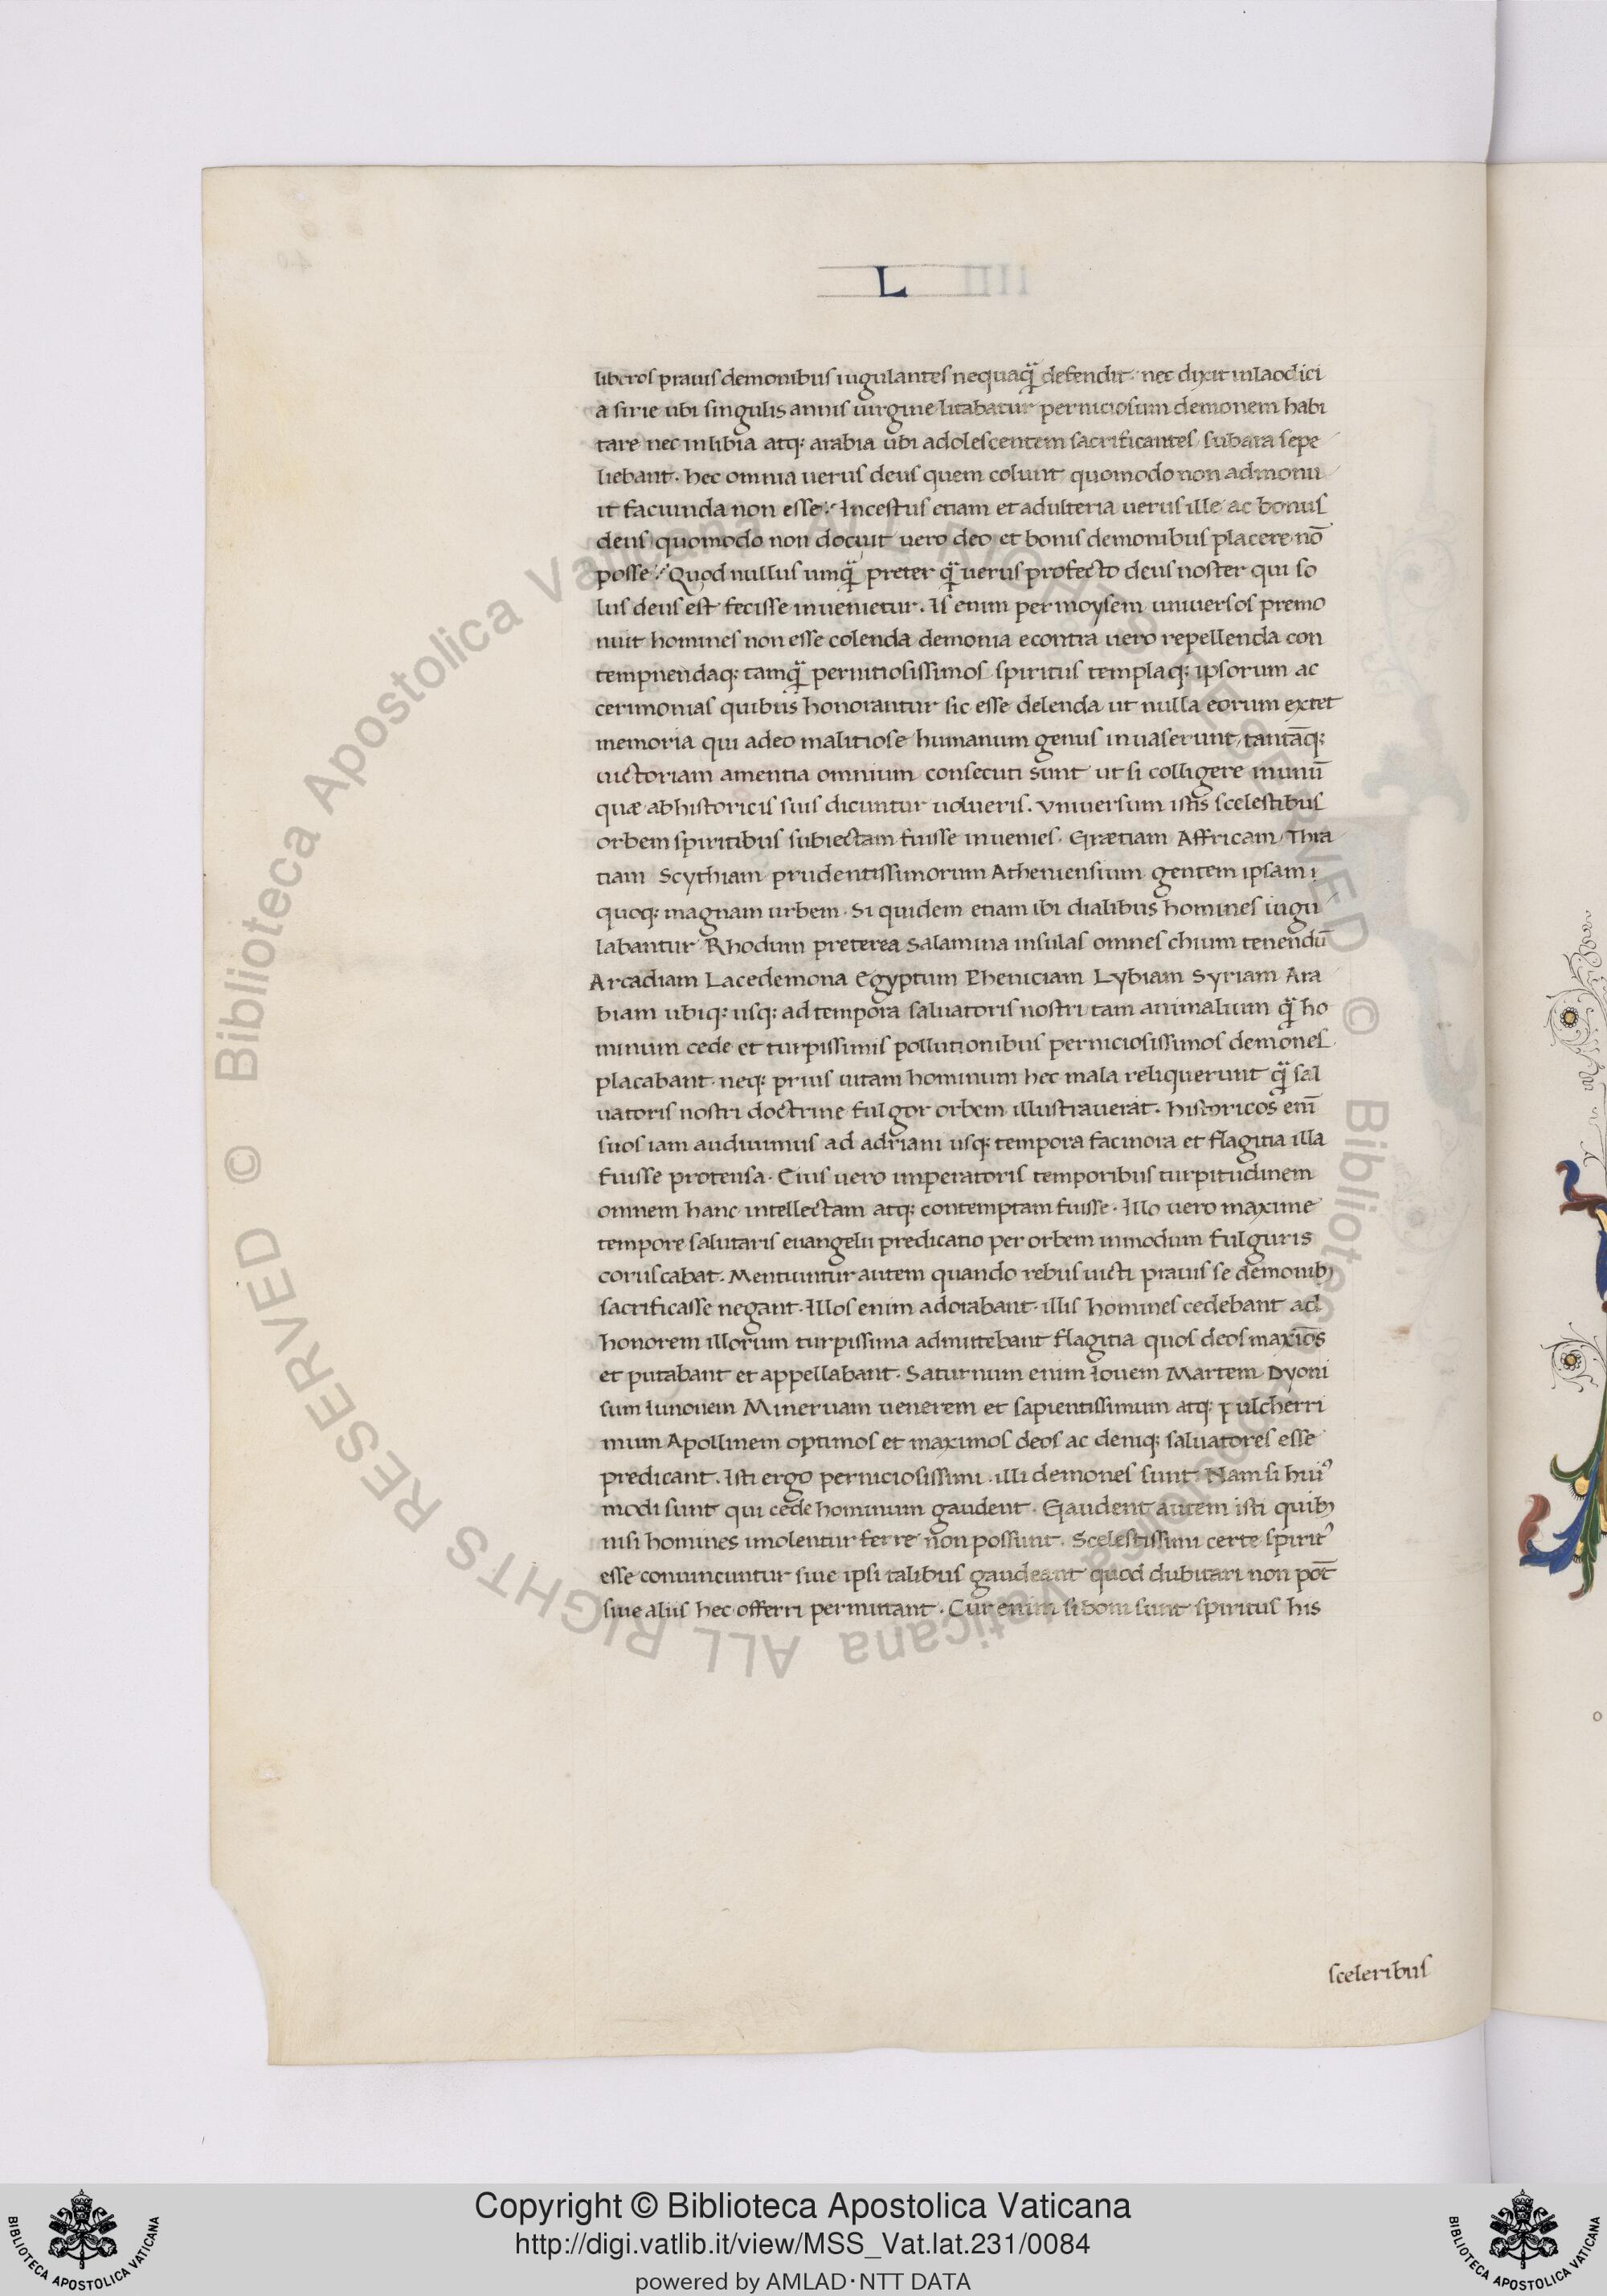 L
liberos prauis demonibus iugulantes nequaq̃ defendit. nec dixit in laodici
a sirie ubi singulis annis uirgine litabatur perniciosum demonem habi
tare nec in libia atq; arabia ubi adolescentem sacrificantes subara sepe
liebant. hec omnia uerus deus quem colunt quomodo non admonu
it faciunda non esse? Incestus etiam et adulteria uerus ille ac bonus
deus quomodo non docuit uero deo et bonis demonibus placere nō
posse? Quod nullus umq̃ preter q̃ uerus profecto deus noster qui so
lus deus est fecisse inuenietur. Is enim per moysem uniuersos premo
nuit homines non esse colenda demonia econtra uero repellenda con
tempnendaq; tamq̃ pernitiosissimos spiritus templaq; ipsorum ac
cerimonias quibus honorantur sic esse delenda ut nulla eorum extet
memoria qui adeo malitiose humanum genus inuaserunt, tantāq;
uictoriam amentia omnium consecuti sunt ut si colligere
quæ ab historicis suis dicuntur uolueris. Vniuersum istis scelestibus
orbem spiritibus subiectam fuisse inuenies. Grætiam Affricam Thra
tiam Scythiam prudentissimorum Atheniensium gentem ipsam
quoq; magnam urbem. Si quidem etiam ibi dialibus homines iugu
labantur Rhodum preterea Salamina insulas omnes chium tenendū
Arcadiam Lacedemona Egyptum Pheniciam Lybiam Syriam Ara
biam ubiq; usq; ad tempora saluatoris nostri tam animalium q̃ ho
minum cede et turpissimis pollutionibus perniciosissimos demones
placabant. neq; prius uitam hominum hec mala reliquerunt q̃ sal
uatoris nostri doctrine fulgor orbem illustrauerat. historicos enī
suos iam audiuimus ad adriani usq; tempora facinora et flagitia illa
fuisse protensa. Eius uero imperatoris temporibus turpitudinem
omnem hanc intellectam atq; contemptam fuisse. Illo uero maxime
tempore salutaris euangelii predicatio per orbem in modum fulguris
coruscabat. Mentiuntur autem quando rebus uicti prauis se demonib;
sacrificasse negant. Illos enim adorabant. illis homines cedebant ad
honorem illorum turpissima admittebant flagitia quos deos maxiōs
et putabant et appellabant. Saturnum enim Iouem Martem Dyoni
sum Iunonem Mineruam uenerem et sapientissimum atq; pulcherri
mum Apollinem optimos et maximos deos ac deniq; saluatores esse
predicant. Isti ergo perniciosissimi illi demones sunt. Nam si hui⁹
modi sunt qui cede hominum gaudent. Gaudent autem isti quib;
nisi homines imolentur ferre non possunt. Scelestissimi certe spirit⁹
esse conuincuntur siue ipsi talibus gaudeant quod dubitari non pōt
siue aliis hec offerri permittant. Cur enim si boni sunt spiritus his
sceleribus
Copyright © Biblioteca Apostolica Vaticana
http://digi.vatlib.it/view/MSS_Vat.lat.231/0084
powered by AMLAD·NTT DATA